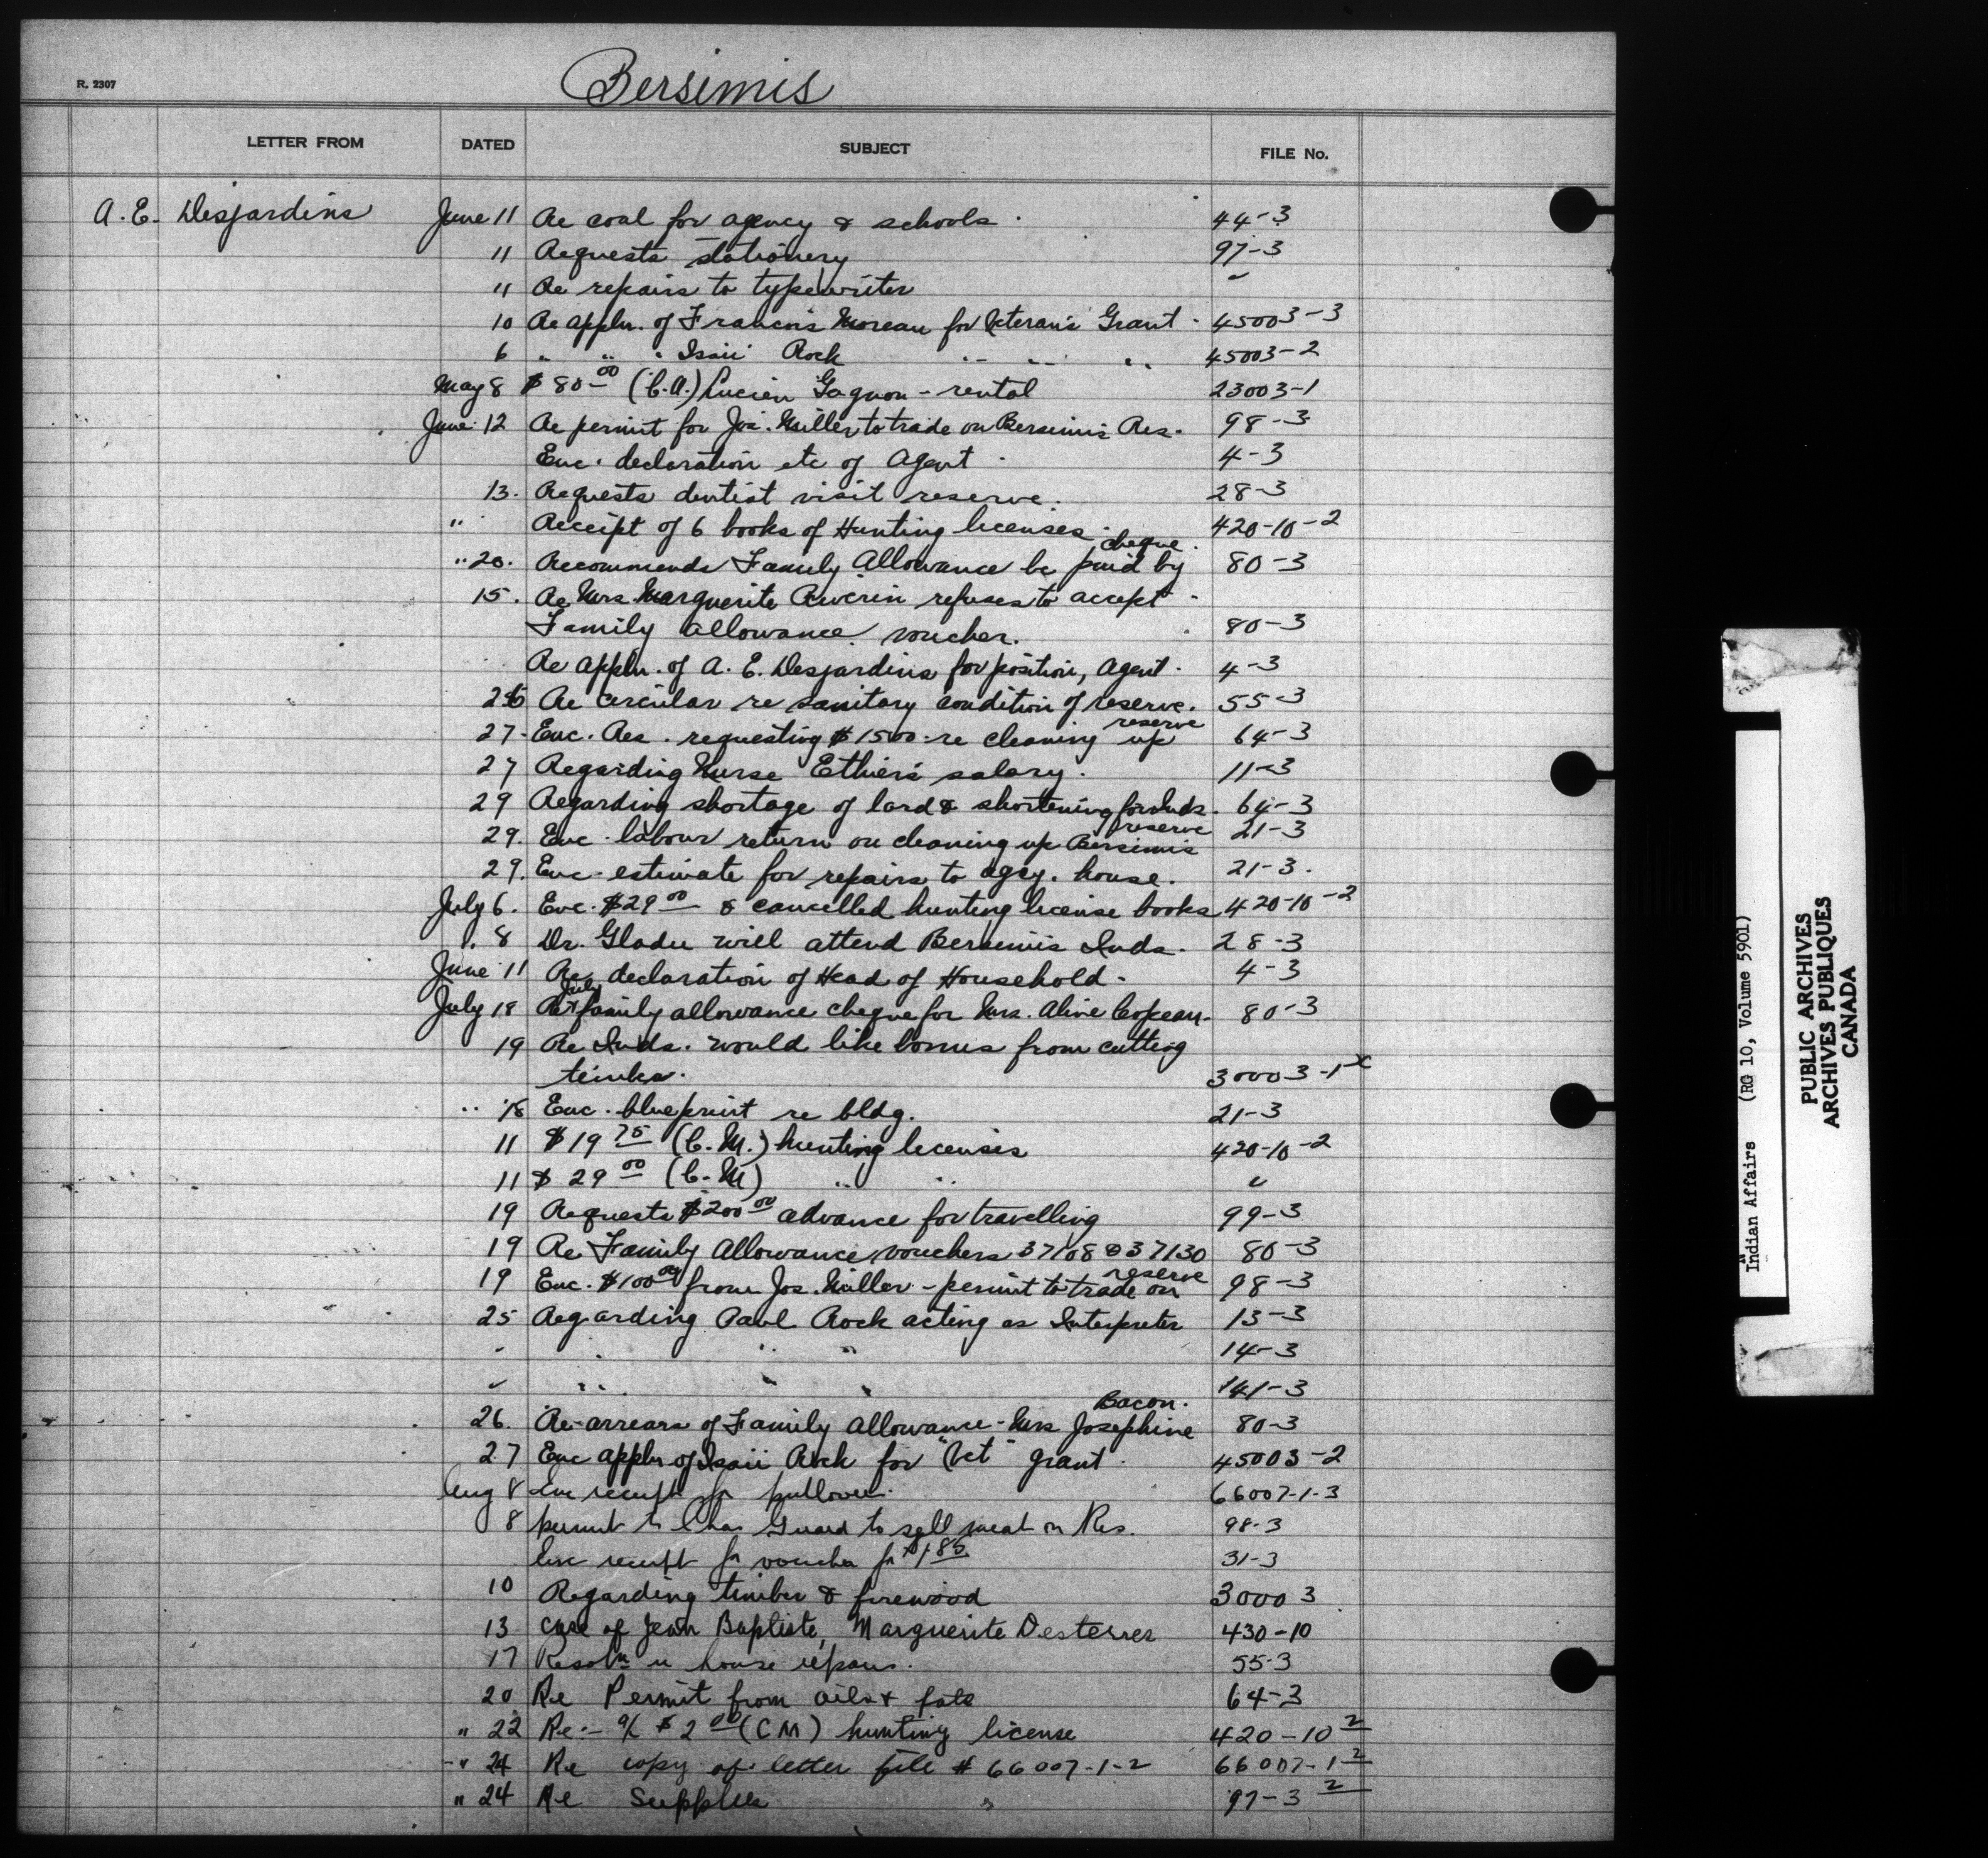 R. 2307
Bersimis
LETTER FROM DATED SUBJECT FILE No.
A. E. Desjardins June 11 Re coal for agency & schools. 44-3
11 Requests stationery 97-3
11 Re repairs to typewriter "
10 Re appln. of Francois Moreau for Veteran's Grant. 45003-3
6 " " " Isaii Rock " " " 45003-2
May 8 $80.00 (C.A.) Lucien Gagnon - rental 23003-1
June 12 Re permit for Jos. Miller to trade on Bersimis Res. 98-3
Enc. declaration etc of Agent. 4-3
13. Requests dentist visit reserve. 28-3
" Receipt of 6 books of Hunting licenses. 420-10-2
" 20. Recommends Family Allowance be paid by cheque. 80-3
15. Re Mrs. Marguerite Riverin refuses to accept
Family allowance voucher. 80-3
Re appln. of A. E. Desjardins for position, Agent. 4-3
Re circular re sanitary condition of reserve. 55-3
27. Enc. Res. requesting $1500 re cleaning up reserve 64-3
27 Regarding Nurse Ethier's salary. 11-3
29 Regarding shortage of lard & shortening for Inds. 64-3
29. Enc. labour return on cleaning up Bersimis reserve 21-3
29. Enc. estimate for repairs to agcy. house. 21-3.
July 6. Enc. $29.00 & cancelled hunting license books 420-10-2
" 8 Dr. Gladu will attend Bersimis Inds. 28-3
June 11 Re declaration of Head of Household. 4-3
July 18 Re July family allowance cheque for Mrs. Aline 80-3
19 Re Inds. would like bonus from cutting
timber. 30003-1
" 18 Enc. blueprint re bldg. 21-3
11 $19.75 (C.M.) hunting licenses 420-10-2
11 $29.00 (C.M) " " "
19 Requests $200.00 advance for travelling 99-3
19 Re Family Allowance vouchers 37108 & 37130 80-3
19 Enc. $100.00 from Jos. Miller - permit to trade on reserve 98-3
25 Regarding Paul Rock acting as Interpreter 13-3
" " " " 14-3
" " " " 141-3
26. Re arrears of Family Allowance - Mrs Josephine Bacon. 80-3
27 Enc appln of Isaii Rock for "Vet" grant. 45003-2
Aug 8 Enc receipt for pullover. 66007-1-3
8 permit to Chas Guard to sell meat on Res. 98-3
Enc receipt for voucher for $1.85 31-3
10 Regarding timber & firewood 30003
13 Case of Jean Baptiste, Marguerite Desterres 430-10
17 Resoln re house repairs. 55-3
20 Re Permit from oils & fats 64-3
" 22 Re:- a/c $2.00 (CM) hunting license 420-10-2
" 24 Re copy of letter file # 66007-1-2 66007-1-2
" 24 Re Supplies 97-3-2
Indian Affairs (RG 10, Volume 5901)
PUBLIC ARCHIVES
ARCHIVES PUBLIQUES
CANADA